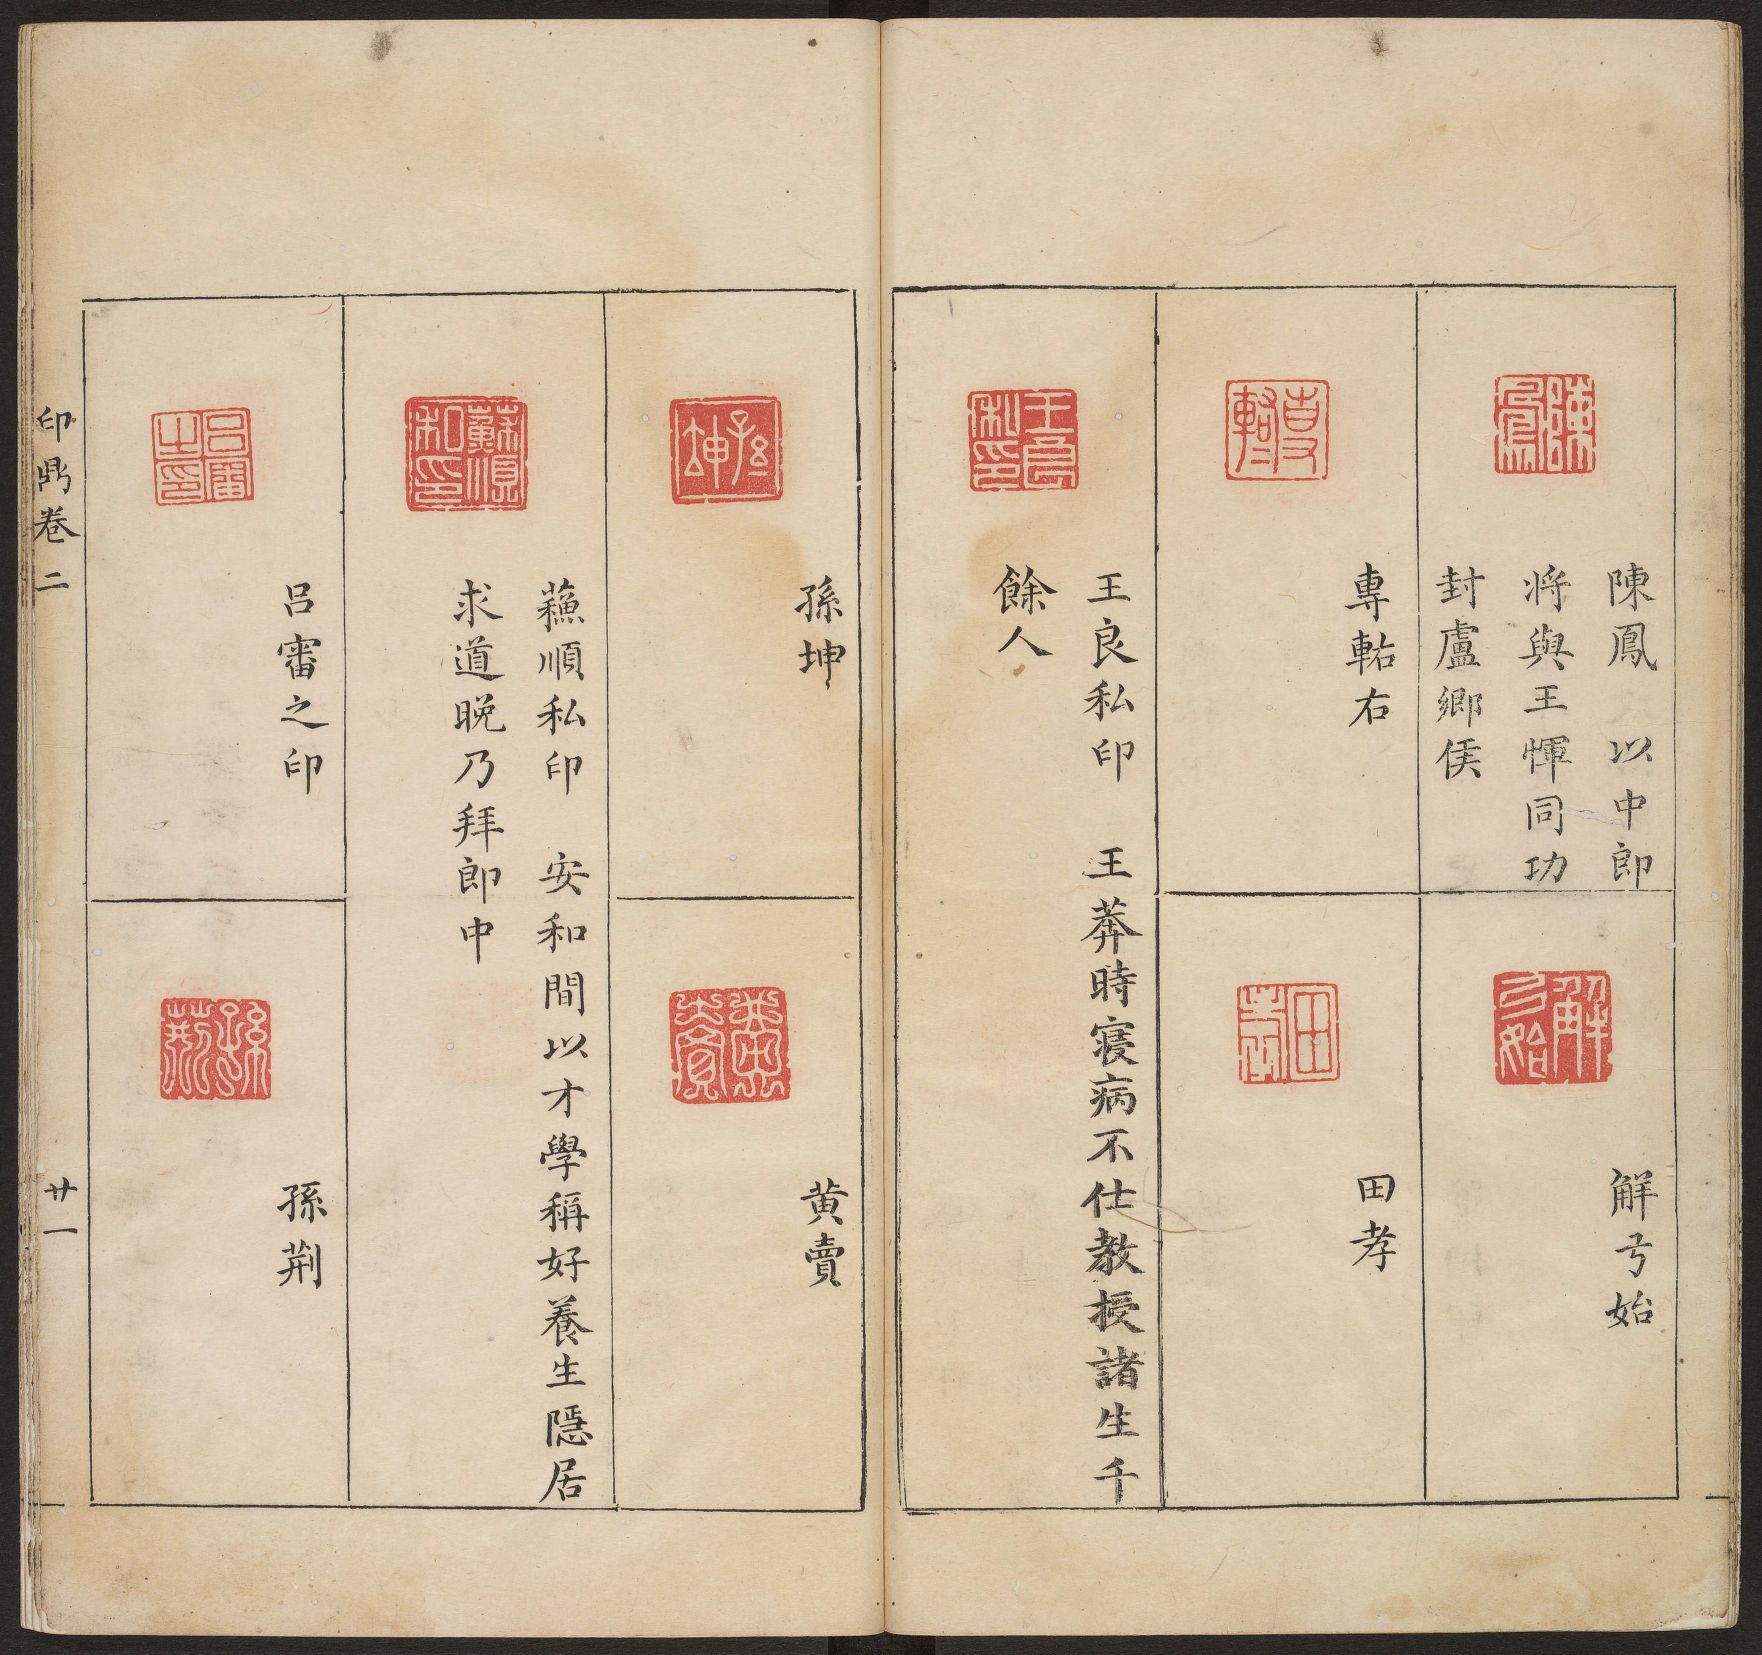 陳鳳　以中郎
将與王惲同功
封盧鄉侯
解弓始
專軲右
田孝
王良私印　王莽時寝病不仕教授諸生千
餘人
孫坤
黄賣
蘓順私印　安和間以才學稱好養生隱居
求道晚乃拜郎中
呂審之印
孫荆
印鼎卷二
廿一